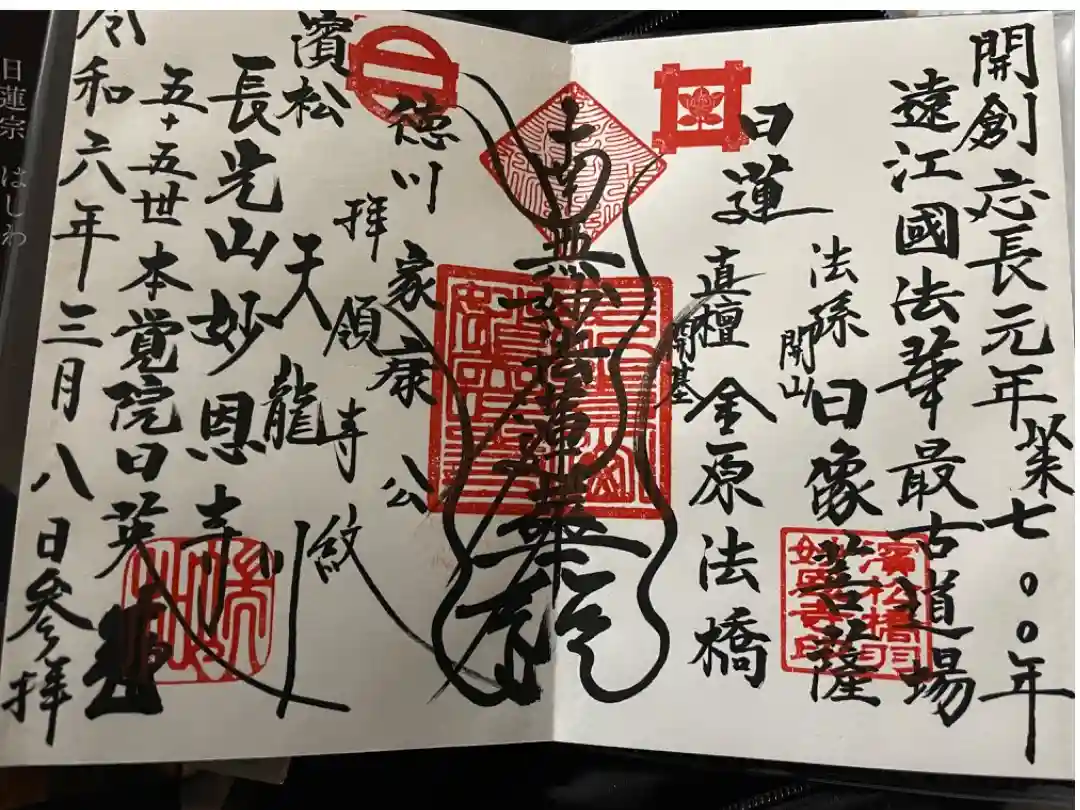 開創応長元年以来七〇〇年
遠江國法華最古道場
法孫開山日像菩薩
日蓮
直檀開基金原法橋
南無妙法蓮華経
徳川家康公
拝領寺紋
天龍川
濱松
長光山妙恩寺
五十五世本覚院日英
令和六年三月八日参拝
濱松橋羽
妙恩寺印
日蓮宗 はしわ